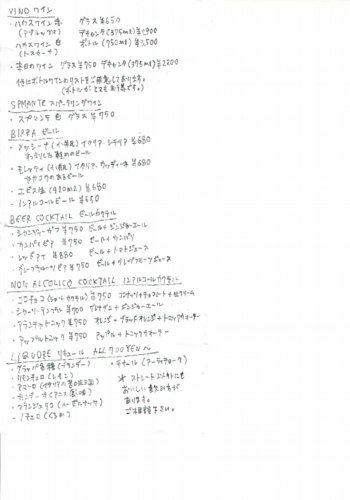 VINO ワイン
・ハウスワイン 赤 グラス ¥650
(アブルッツォ) デキャンタ(375ml) ¥1,900
ハウスワイン 白 ボトル (750ml) ¥3,500
(トスカーナ)
・本日のワイン グラス ¥750 デキャンタ(375ml) ¥2200
他にボトルワインのリストをご用意しております。
(ボトルが とても お得です。)
SPMANTE スパークリングワイン
・スプマンテ 白 グラス ¥750
BIRRA ビール
・メッシーナ (イタリア・シチリア ¥680
すっきりした軽めのビール
・モレッティ (イタリア ¥680
のあるビール
・エビス (980ml) ¥680
・ノンアルコールビール ¥550
BEER COCKTAIL ビールカクテル
・シャンディーガフ ¥750 ビール+ジンジャーエール
・カンパリビア ¥750 ビール+カンパリ
・レッドアイ ¥880 ビール+トマトジュース
・グレープフルーツビア ¥750 ビール+グレープフルーツジュース
NON ALCOLICO COCKTAIL ノンアルコールカクテル
・ココチョコ ¥750 ココナッツ+チョコレート+生クリーム
・シャーリーテンプル ¥700 グレナデン+ジンジャーエール
¥750 オレンジ+ブラッドオレンジ+トニックウォーター
・アップルトニック ¥750 アップル+トニックウォーター
LIQUORE リキュール ALL 700YEN～
・グラッパ各種 (ブランデー) ・チナール (アーティチョーク)
・リモンチェロ (レモン) ※ ストレート以外にも
・アマーロ おいしい飲み方が
・サンブーカ (アニス あります。
・フランジェリコ (ヘーゼルナッツ) ご相談下さい。
・ノチェロ (くるみ)